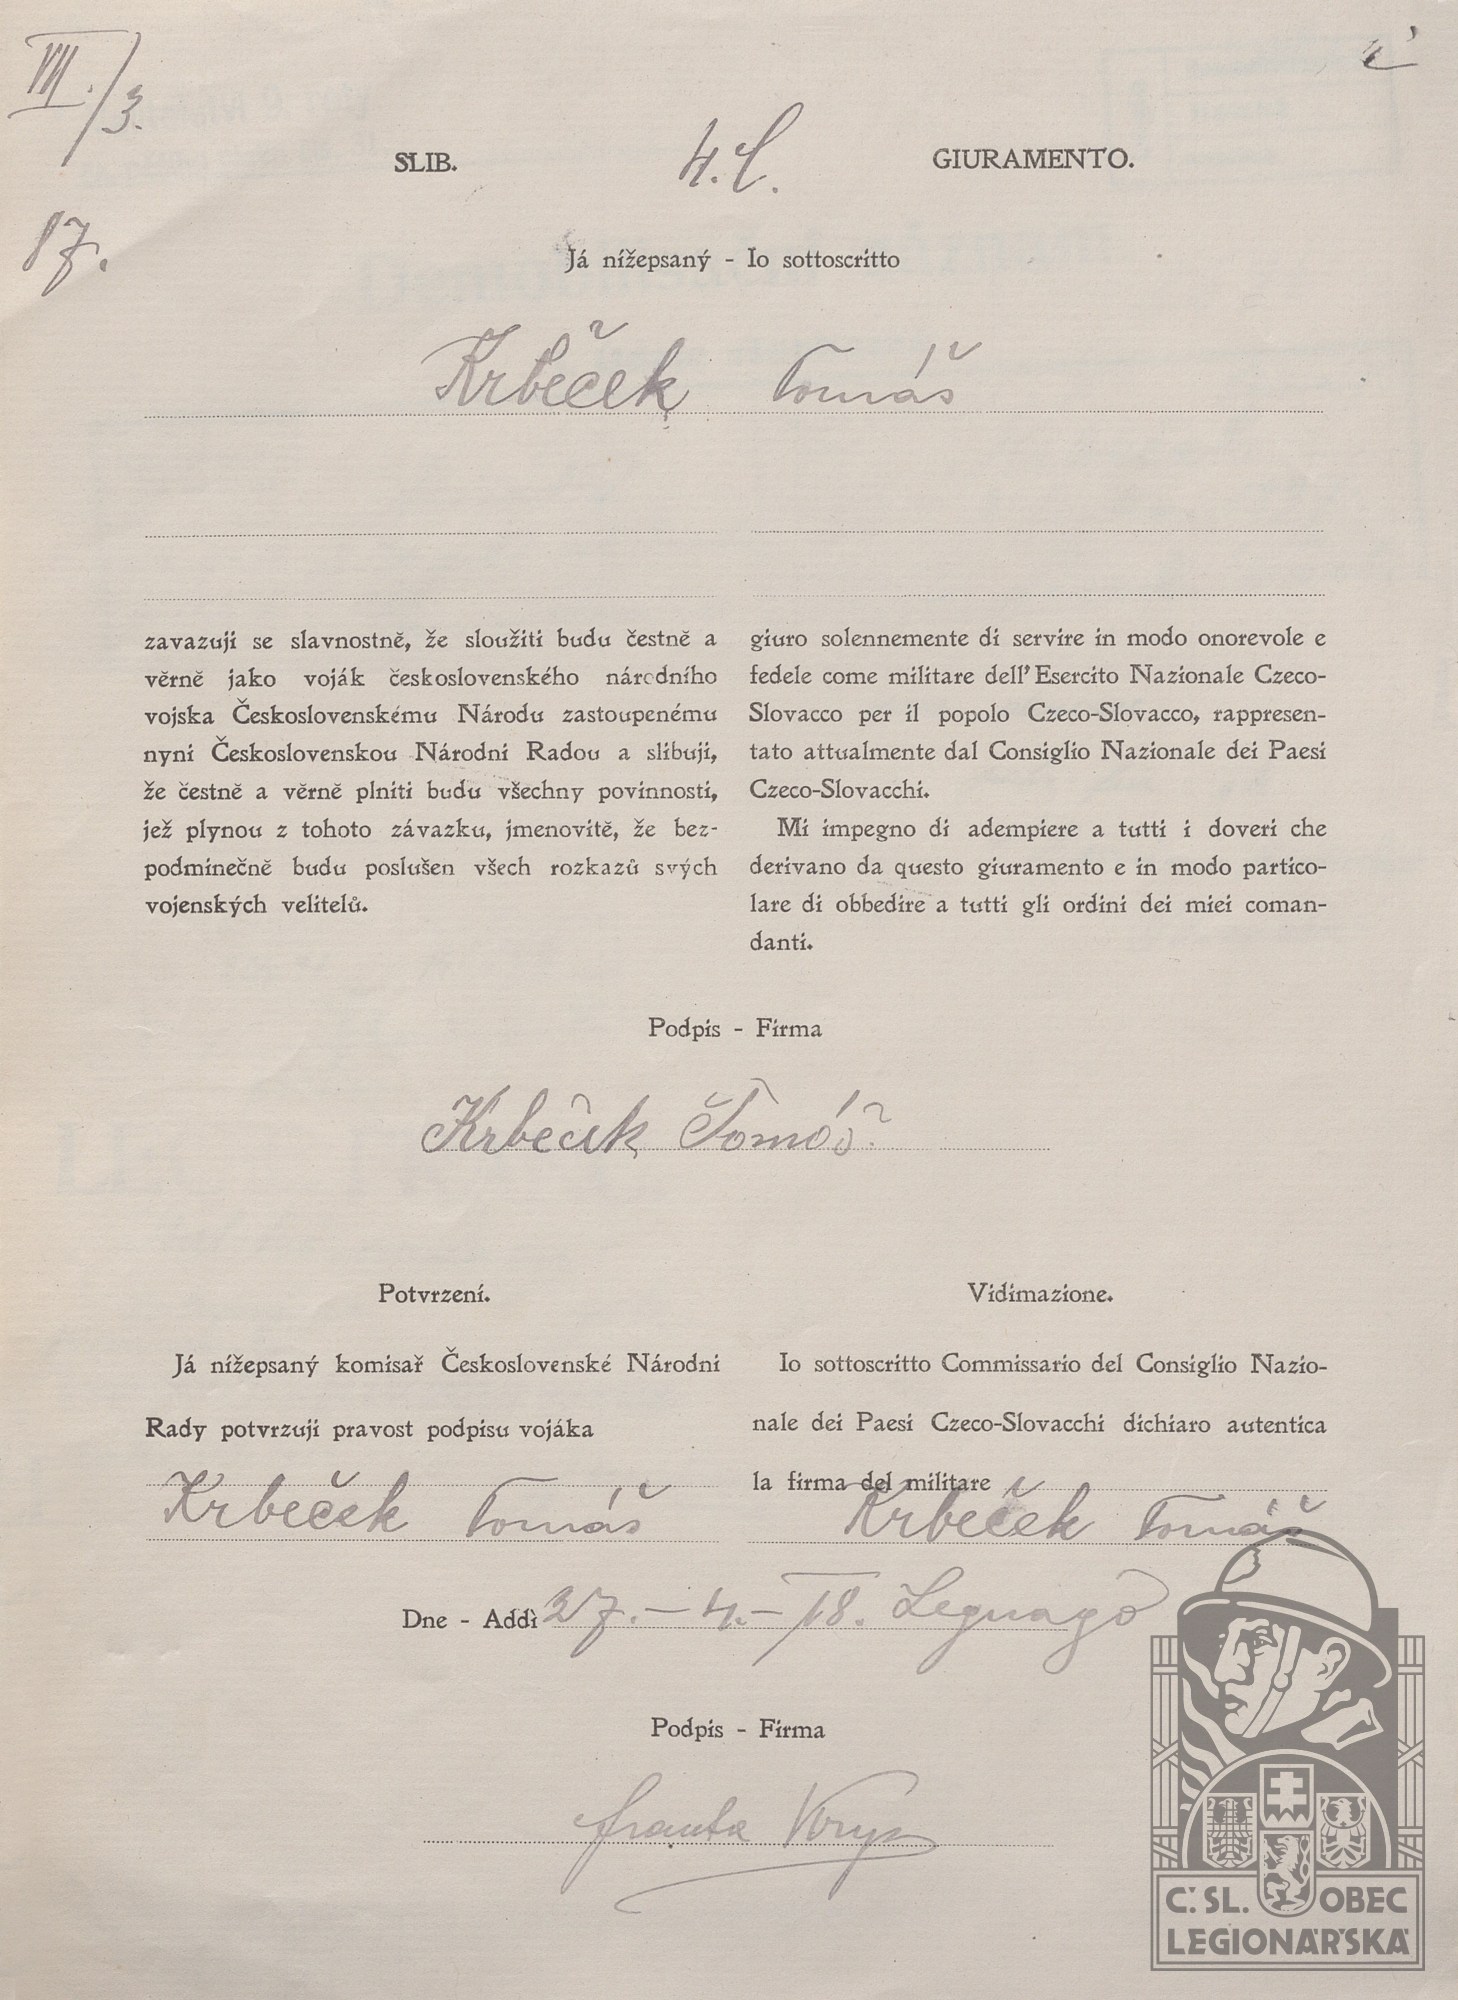 VII./3.
SLIB.
GIURAMENTO.
17.
Já nížepsaný - Io sottoscritto
Krběček Tomáš
zavazuji se slavnostně, že sloužiti budu čestně a
věrně jako voják československého národního
vojska Československému Národu zastoupenému
nyní Československou Národní Radou a slibuji,
že čestně a věrně plniti budu všechny povinnosti,
jež plynou z tohoto závazku, jmenovitě, že bez-
podmínečně budu poslušen všech rozkazů svých
vojenských velitelů.
giuro solennemente di servire in modo onorevole e
fedele come militare dell'Esercito Nazionale Czeco-
Slovacco per il popolo Czeco-Slovacco, rappresen-
tato attualmente dal Consiglio Nazionale dei Paesi
Czeco-Slovacchi.
Mi impegno di adempiere a tutti i doveri che
derivano da questo giuramento e in modo partico-
lare di obbedire a tutti gli ordini dei miei coman-
danti.
Podpis - Firma
Krběček Tomáš
Potvrzení.
Já nížepsaný komisař Československé Národní
Rady potvrzuji pravost podpisu vojáka
Krbeček Tomáš
Vidimazione.
Io sottoscritto Commissario del Consiglio Nazio-
nale dei Paesi Czeco-Slovacchi dichiaro autentica
la firma del militare
Krbeček Tomáš
Dne - Addì 27.-4.-18. Legnago
Podpis - Firma
Franta
Č. SL. OBEC
LEGIONÁŘSKÁ